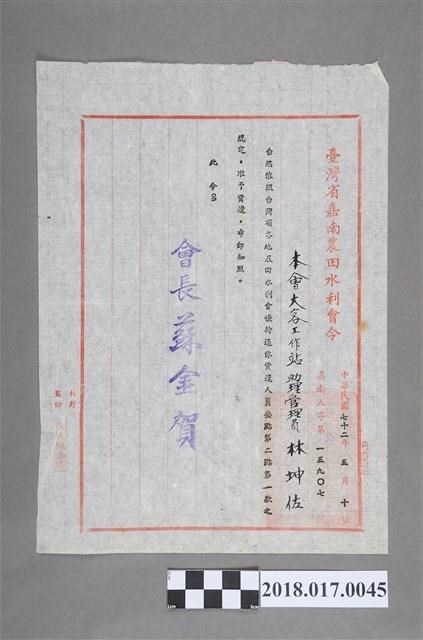 臺灣省嘉南農田水利會令
中華民國七十二年五月十日
嘉南人字第一五九〇七
本會大客工作站助理管理員林坤佐
台端依照台灣省各地農田水利會優待退休資遣人員要點第二點第一款之
規定,准予資遣,希即知照。
此令
會長蘇金賀
校對
監印
2018.017.0045